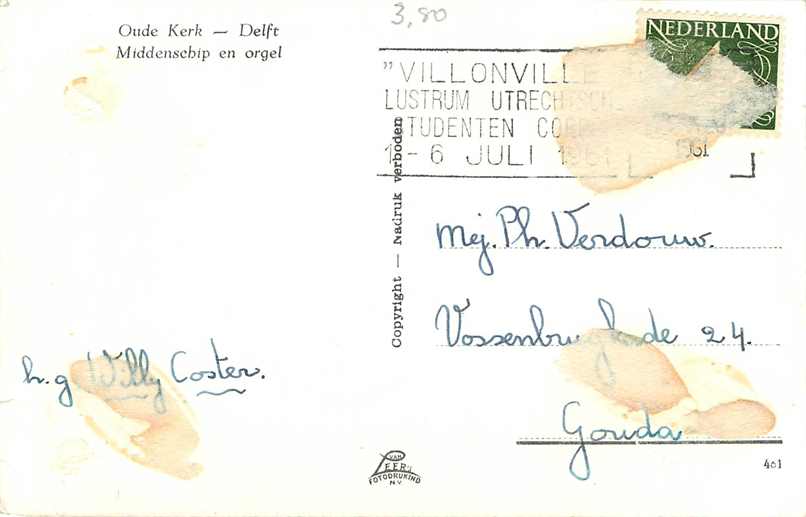 Oude Kerk — Delft
Middenschip en orgel
3,80
NEDERLAND
"VILLONVILLE
LUSTRUM UTRECHTSCH
STUDENTEN CORPS
1-6 JULI 1961
1961
Copyright — Nadruk verboden
Mej. Ph. Verdouw.
24.
Gouda
h.g Willy Coster.
VAN
LEER'S
FOTODRUKIND
N.V.
401